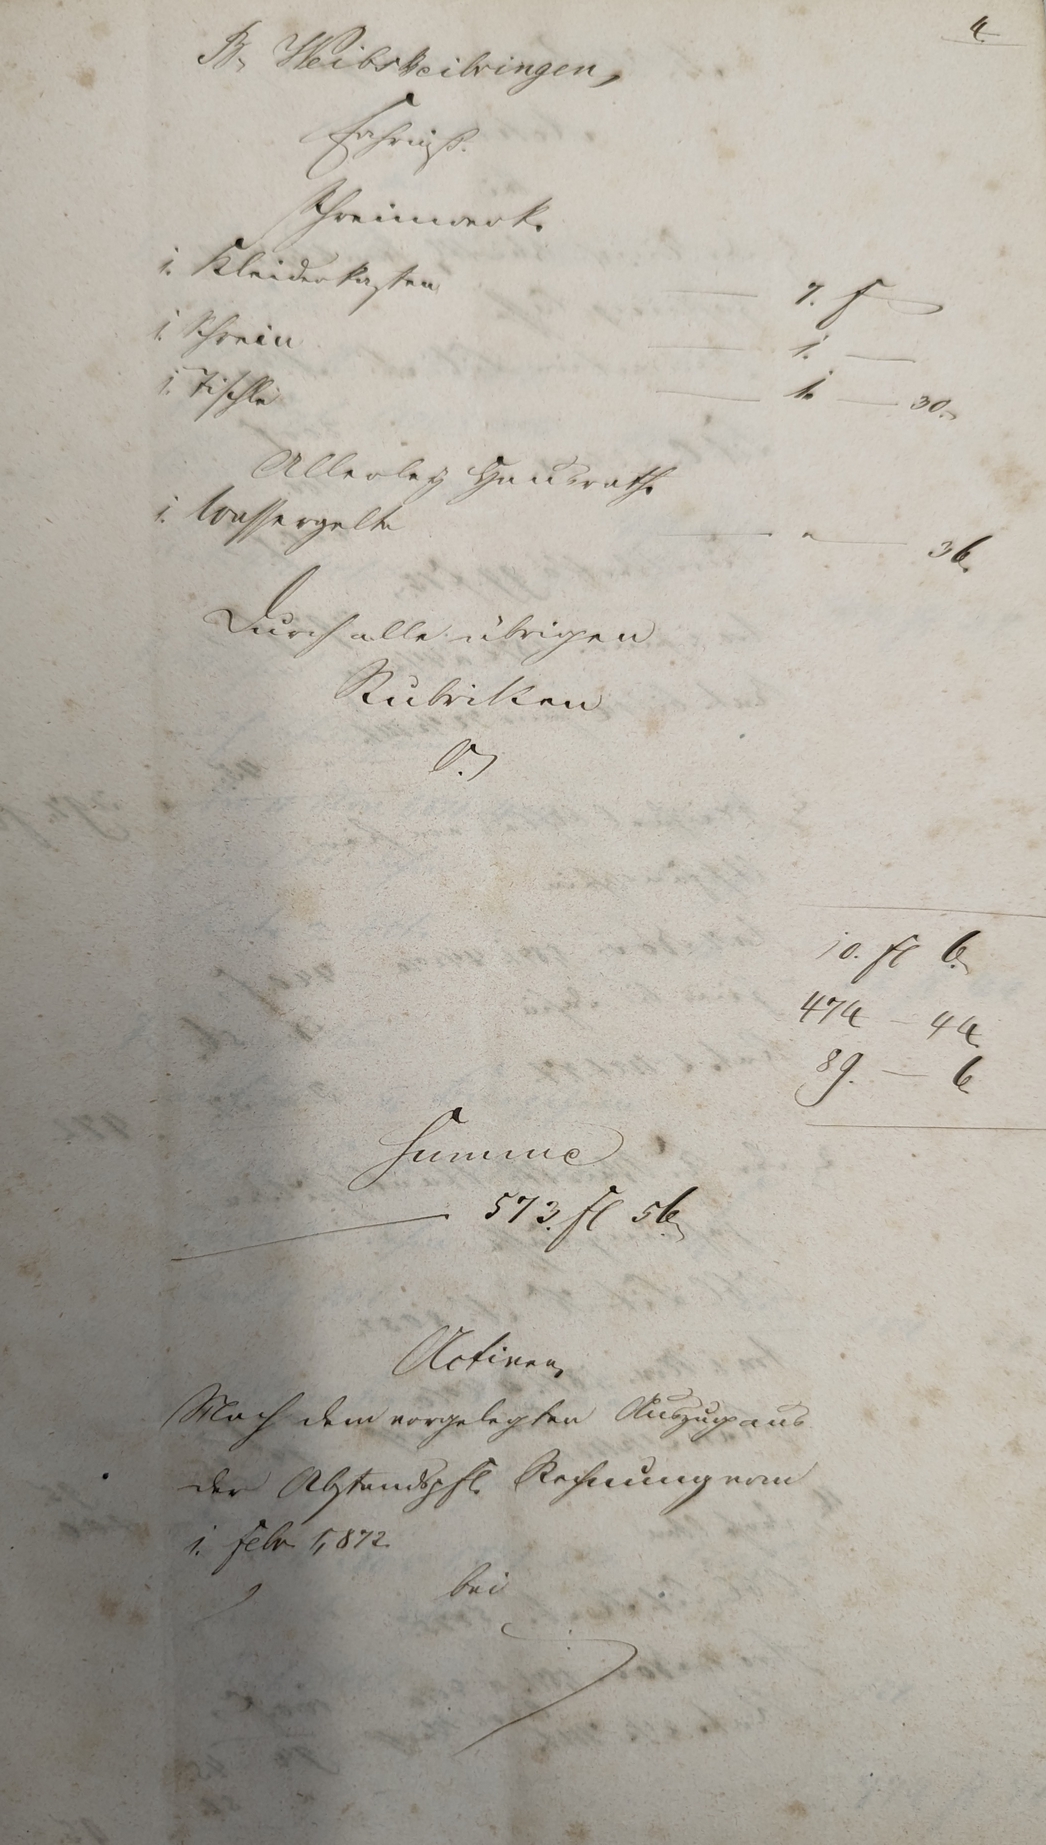 4.
B., Weibsbeibringen,
Fahrniß.
Schreinwerk.
1. Kleiderkasten — 7. f —
1. Schrein — 1. —
1. Tischle — 1. — 30.
Allerley Hausrath.
1. Wassergelte — „ — 36.
Durch alle übrigen
Rubriken
0.
10. fl 6.
474 — 44.
89. — 6.
Summe
— 573. fl 56.
Activen,
Nach dem vorgelegten Auszug aus
der Rechnung vom
1. Febr. 1,872
bei